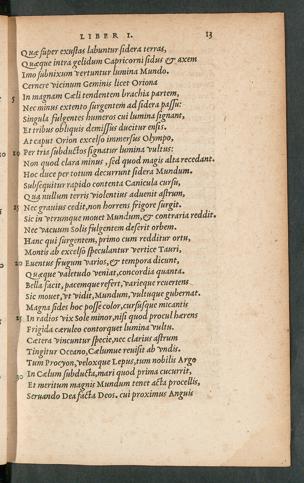 LIBER I. 13
Quæ super exustas labuntur sidera terras,
Quæque intra gelidum Capricorni sidus & axem
Imo subnixum vertuntur lumina Mundo.
Cernere vicinum Geminis licet Oriona
5 In magnam Cæli tendentem brachia partem,
Nec minus extento surgentem ad sidera passu:
Singula fulgentes humeros cui lumina signant,
Et tribus obliquis demissus ducitur ensis.
At caput Orion excelso immersus Olympo,
10 Per tria subductos signatur lumina vultus:
Non quod clara minus, sed quod magis alta recedant.
Hoc duce per totum decurrunt sidera Mundum.
Subsequitur rapido contenta Canicula cursu,
Qua nullum terris violentius aduenit astrum,
15 Nec grauius cedit, non horrens frigore surgit.
Sic in vtrumque mouet Mundum, & contraria reddit.
Nec vacuum Solis fulgentem deserit orbem.
Hanc qui surgentem, primo cum redditur ortu,
Montis ab excelso speculantur vertice Tauri,
20 Euentus frugum varios, & tempora dicunt,
Quæque valetudo veniat, concordia quanta.
Bella facit, pacemque refert, varieque reuertens
Sic mouet, vt vidit, Mundum, vultuque gubernat.
Magna fides hoc posse color, cursusque micantis
25 In radios vix Sole minor, nisi quod procul hærens
Frigida cæruleo contorquet lumina vultu.
Cætera vincuntur specie, nec clarius astrum
Tingitur Oceano, Cælumue reuisit ab vndis.
Tum Procyon, veloxque Lepus, tum nobilis Argo
30 In Cælum subducta, mari quod prima cucurrit,
Et meritum magnis Mundum tenet acta procellis,
Seruando Dea facta Deos. cui proximus Anguis